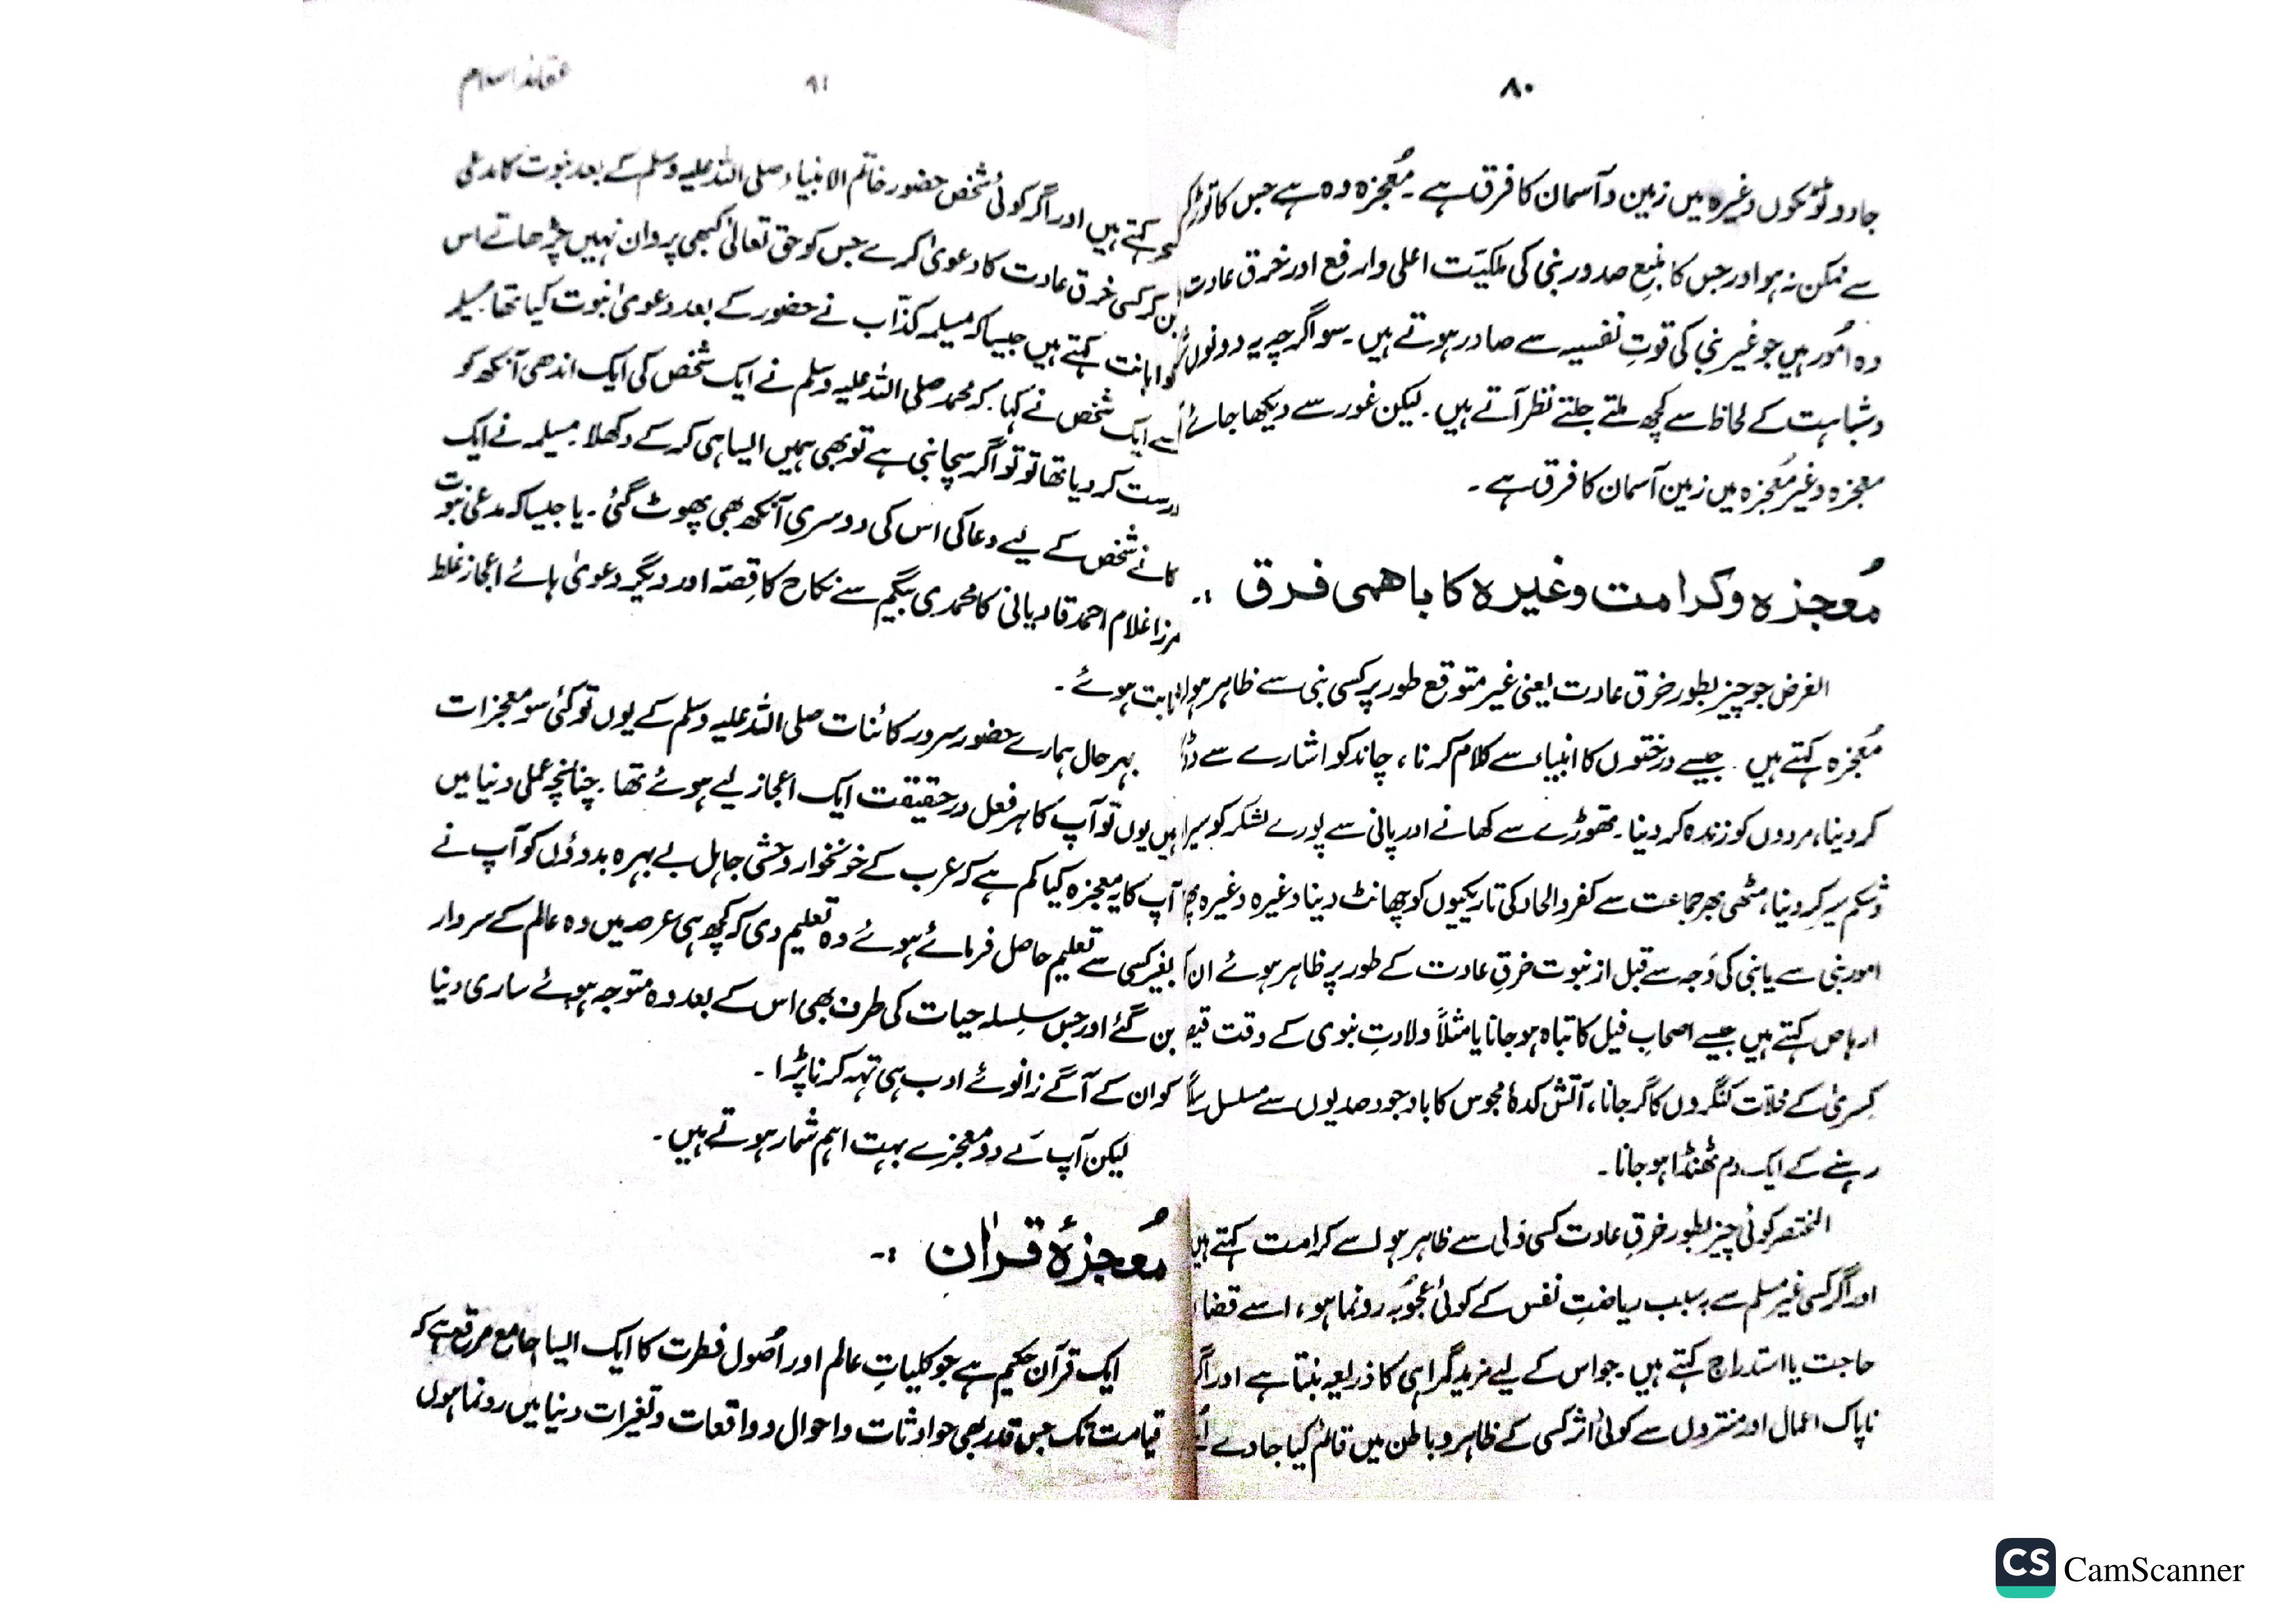 ۸۰
جادو ٹوٹکوں وغیرہ میں زمین و آسمان کا فرق ہے۔ مُعجزہ وہ ہے جس کا توڑ
سے ممکن نہ ہو اور جس کا منبعِ صدور نبی کی ملکیّت اعلی وارفع اور خرق عادت
وہ اُمور ہیں جو غیر نبی کی قوتِ نفسیہ سے صادر ہوتے ہیں۔ سو اگرچہ یہ دونوں
و شباہت کے لحاظ سے کچھ ملتے جلتے نظر آتے ہیں۔ لیکن غور سے دیکھا جائے
معجزہ و غیر مُعجزہ میں زمین آسمان کا فرق ہے۔
مُعجزہ و کرامت وغیرہ کا باھمی فرق :۔
الغرض جو چیز بطور خرق عادت یعنی غیر متوقع طور پر کسی نبی سے ظاہر ہو
مُعجزہ کہتے ہیں۔ جیسے درختوں کا انبیاء سے کلام کرنا، چاند کو اشارے سے
کر دینا، مردوں کو زندہ کر دینا۔ تھوڑے سے کھانے اور پانی سے پورے لشکر کو
و شکم سیر کر دینا، مٹھی بھر جماعت سے کفر والحاد کی تاریکیوں کو چھانٹ دینا وغیرہ وغیرہ
امور نبی سے یا نبی کی وَجہ سے قبل از نبوت خرقِ عادت کے طور پر ظاہر ہوئے ان
ارہاص کہتے ہیں جیسے اصحابِ فیل کا تباہ ہو جانا یا مثلاً ولادتِ نبوی کے وقت
کِسریٰ کے محلات کنگروں کا گر جانا، آتش کدۂ مجوس کا باوجود صدیوں سے مسلسل
رہنے کے ایک دم ٹھنڈا ہو جانا۔
المختصر کوئی چیز بطور خرقِ عادت کسی ولی سے ظاہر ہو اسے کرامت کہتے ہیں
اور اگر کسی غیر مسلم سے بہ سبب ریاضتِ نفس کے کوئی عجُوبہ رونما ہو، اسے قضا
حاجت یا استدراج کہتے ہیں۔ جو اس کے لیے مزید گمراہی کا ذریعہ بنتا ہے اور اگر
ناپاک اعمال اور منتروں سے کوئی اثر کسی کے ظاہر و باطن میں قائم کیا جاوے
۹۱
عقائد اسلام
سحر کہتے ہیں اور اگر کوئی شخص حضور خاتم الانبیاء صلی اللہ علیہ وسلم کے بعد نبوت کا مدعی
بن کر کسی خرق عادت کا دعویٰ کرے جس کو حق تعالیٰ کبھی پروان نہیں چڑھاتے اس
کو اہانت کہتے ہیں جیسا کہ مسیلمہ کذّاب نے حضور کے بعد دعویٰ نبوت کیا تھا مسیلمہ
سے ایک شخص نے کہا۔ کہ محمد صلی اللہ علیہ وسلم نے ایک شخص کی ایک اندھی آنکھ کو
درست کر دیا تھا تو تو اگر سچا نبی ہے تو بھی ہمیں ایسا ہی کر کے دکھلا۔ مسیلمہ نے ایک
کانے شخص کے لیے دعا کی اس کی دوسری آنکھ بھی پھوٹ گئی۔ یا جیسا کہ مدعی نبوت
مرزا غلام احمد قادیانی کا محمدی بیگم سے نکاح کا قِصّہ اور دیگر دعویٰ ہائے اعجاز غلط
ثابت ہوئے۔
بہر حال ہمارے حضور سرور کائنات صلی اللہ علیہ وسلم کے یوں تو کئی سو معجزات
ہیں یوں تو آپ کا ہر فعل درحقیقت ایک اعجاز لیے ہوئے تھا۔ چنانچہ عملی دنیا میں
آپ کا یہ معجزہ کیا کم ہے کہ عرب کے خونخوار وحشی جاہل بے بہرہ بدوؤں کو آپ نے
بغیر کسی سے تعلیم حاصل فرمائے ہوئے وہ تعلیم دی کہ کچھ ہی عرصہ میں وہ عالم کے سردار
بن گئے اور جس سِلسلہ حیات کی طرف بھی اس کے بعد وہ متوجہ ہوئے ساری دنیا
کو ان کے آگے زانوئے ادب ہی تہہ کرنا پڑا۔
لیکن آپ کے دو معجزے بہت اہم شمار ہوتے ہیں۔
مُعجزۂ قراٰن :۔
ایک قرآن حکیم ہے جو کلیاتِ عالم اور اُصول فطرت کا ایک ایسا جامع مرقع ہے کہ
قیامت تک جس قدر بھی حوادثات و احوال و واقعات و تغیرات دنیا میں رونما ہوں
CS CamScanner